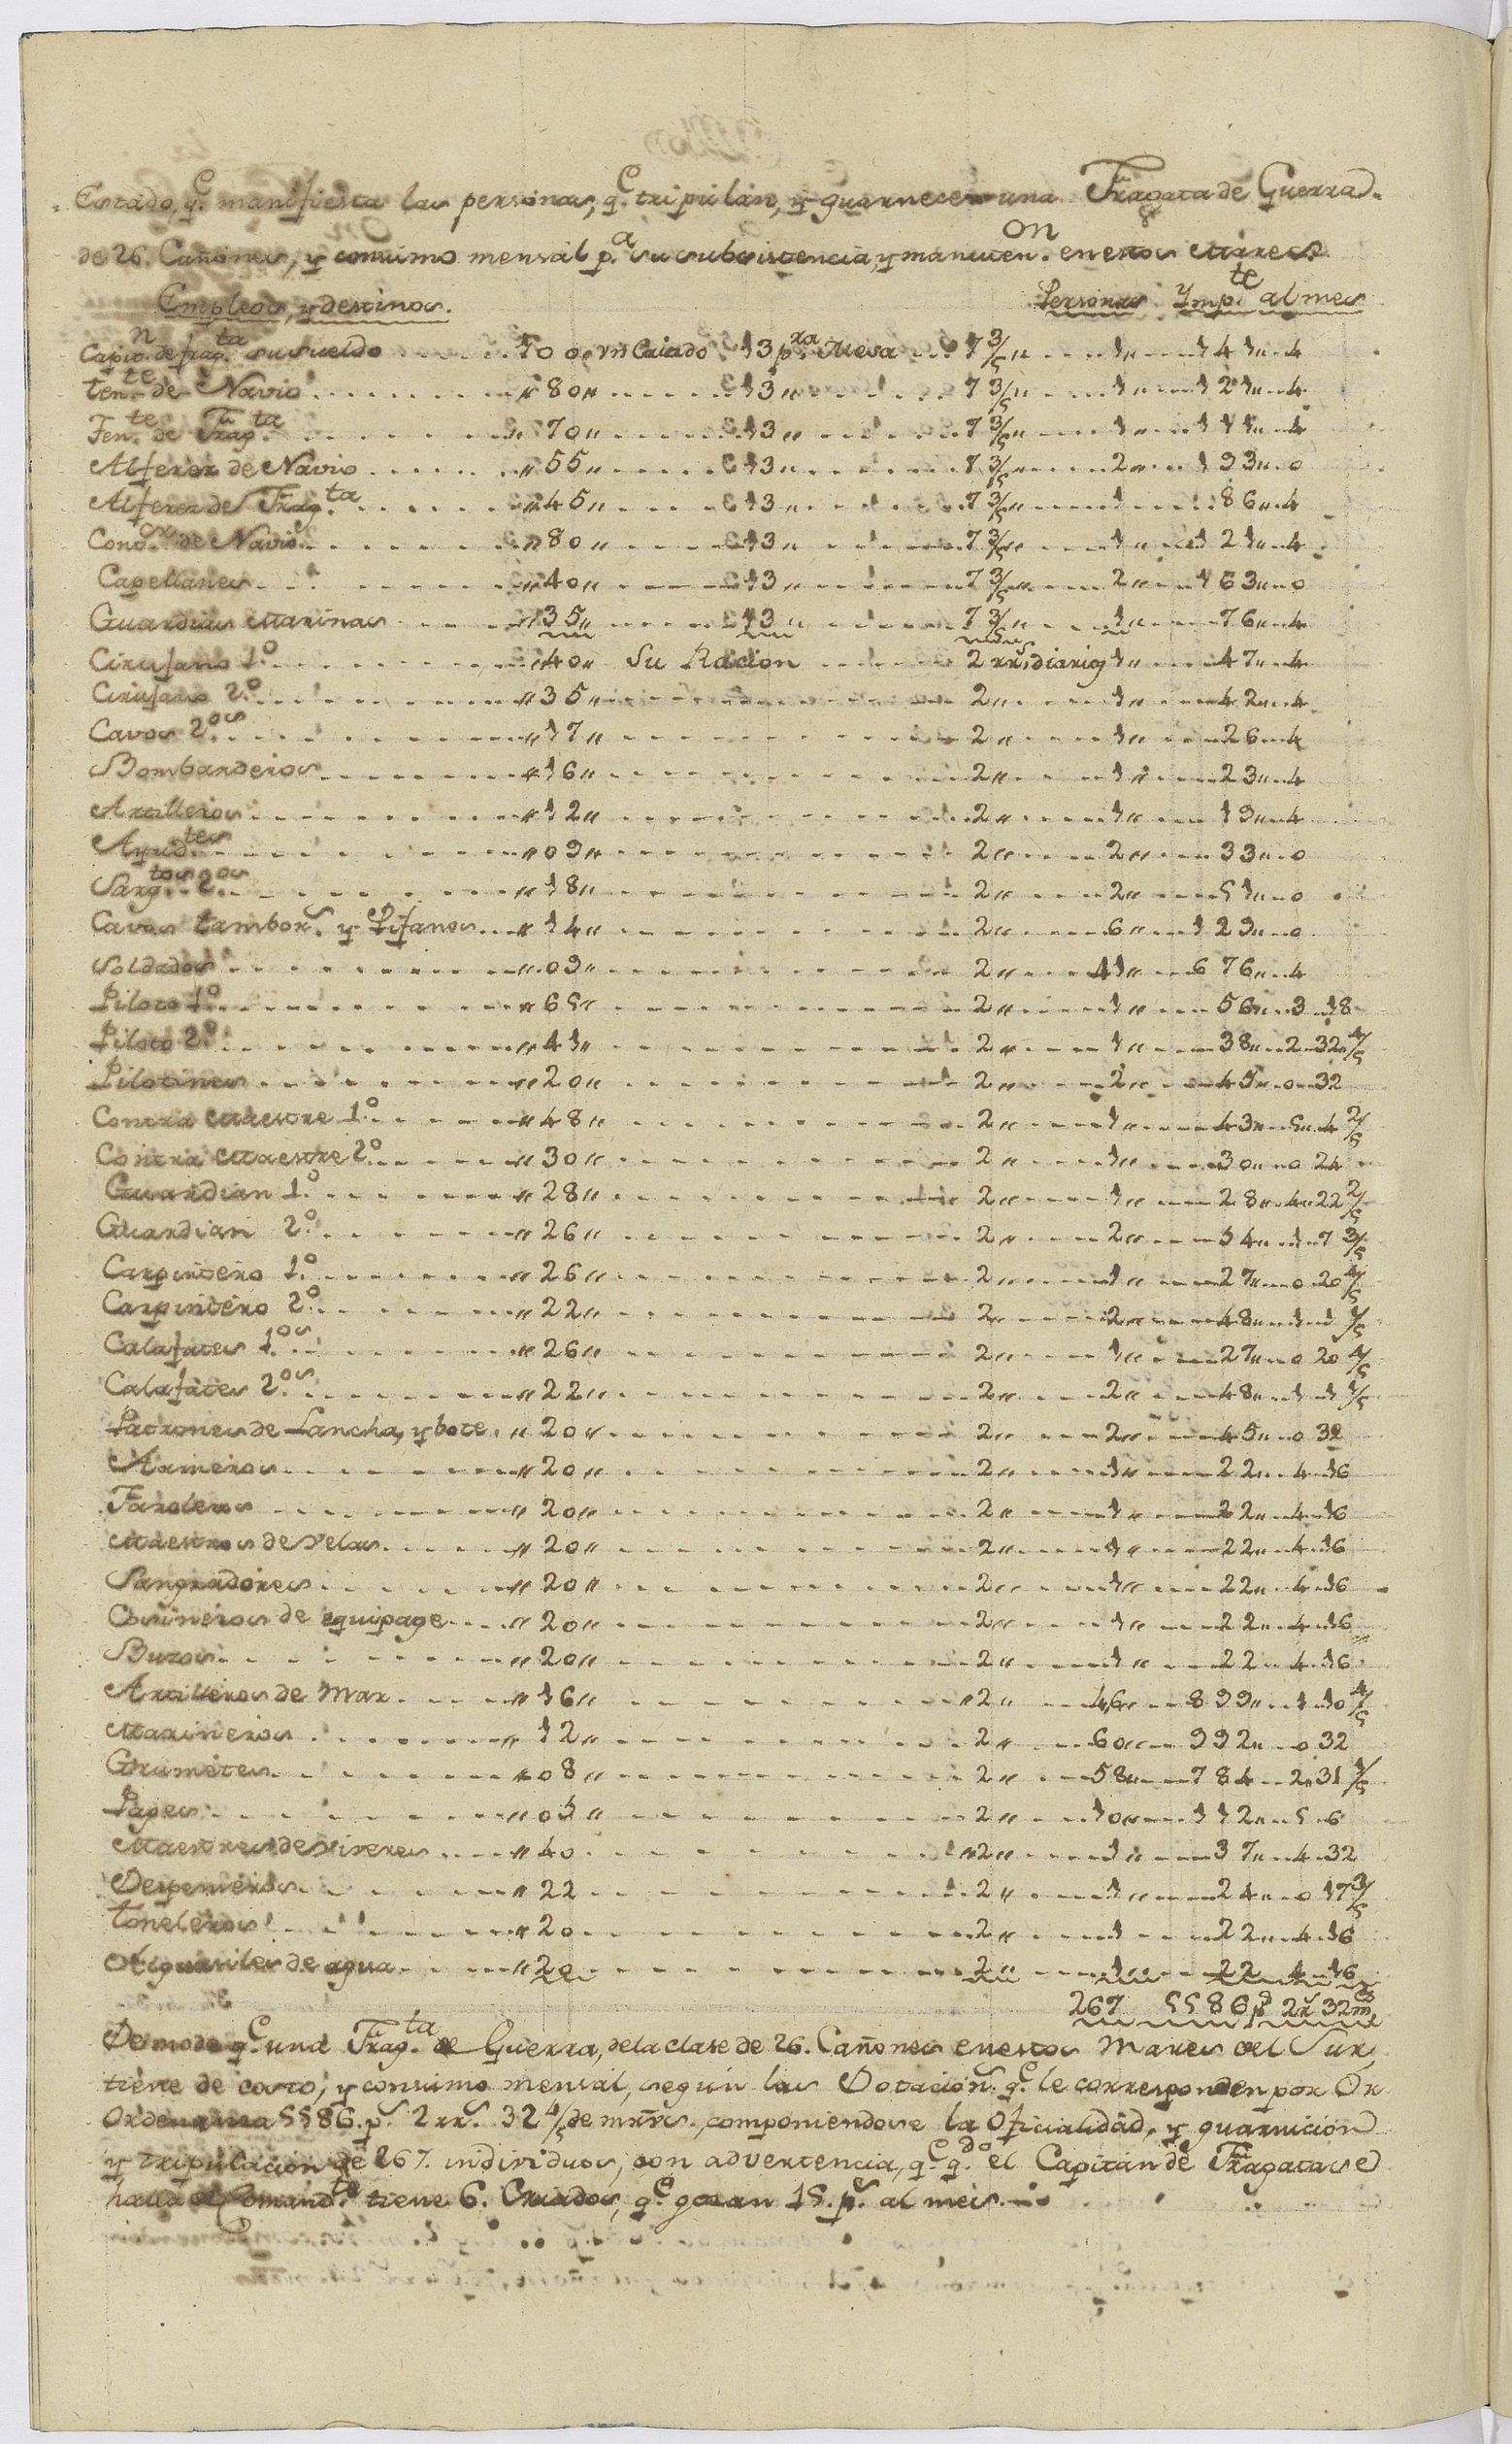 Estado, q.e manifiesta las personas, q.e tripulan, y guarnecen una Fragata de Guerra
de 26. Cañones, y consumo mensal p.a su subsistencia, y manuten.on en estos Mares
Empleos, y destinos. Personas Ymp.te al mes
Capit.n de frag.ta su sueldo 100 Criado 13 p.ra Mesa 7 3/5 1 141 4
Ten.te de Navio 80 13 7 3/5 1 121 4
Ten.te de Frag.ta 70 13 7 3/5 1 111 4
Alferez de Navio 55 13 7 3/5 2 193 0
Alferez de Frag.ta 45 13 7 3/5 1 86 4
Cont.or de Navio 80 13 7 3/5 1 121 4
Capellanes 40 13 7 3/5 2 163 0
Guardias Marinas 35 13 7 3/5 1 76 4
Cirujano 1.o 40 Su Racion 2 rr.s diarios 1 47 4
Cirujano 2.o 35 2 1 42 4
Cavos 2.os 17 2 1 26 4
Bombarderos 16 2 1 23 4
Artilleros 12 2 1 19 4
Ayud.tes 09 2 2 33 0
Sarg.tos 2.os 18 2 2 51 0
Cavos tambor.s y Pifanos 14 2 6 129 0
Soldados 09 2 41 676 4
Piloto 1.o 65 2 1 56 3 18
Piloto 2.o 41 2 1 38 2 32 4/5
Pilotines 20 2 2 45 0 32
Contra Maestre 1.o 48 2 1 43 5 4 2/5
Contra Maestre 2.o 30 2 1 30 0 24
Guardian 1.o 28 2 1 28 4 22 2/5
Guardian 2.o 26 2 2 54 1 7 3/5
Carpintero 1.o 26 2 1 27 0 20 4/5
Carpintero 2.o 22 2 2 48 1 1 1/5
Calafates 1.os 26 2 1 27 0 20 4/5
Calafates 2.os 22 2 2 48 1 1 1/5
Patrones de Lancha, y bote 20 2 2 45 0 32
Armeros 20 2 1 22 4 16
Faroleros 20 2 1 22 4 16
Maestros de velas 20 2 1 22 4 16
Sangradores 20 2 1 22 4 16
Cosineros de equipage 20 2 1 22 4 16
Buzos 20 2 1 22 4 16
Artilleros de Mar 16 2 46 899 1 10 4/5
Marineros 12 2 60 992 0 32
Grumetes 08 2 58 784 2 31 1/5
Pages 05 2 10 112 5 6
Maestres de viveres 40 2 1 37 4 32
Despenseros 22 2 1 24 0 17 3/5
Toneleros 20 2 1 22 4 16
Alguasiles de agua 20 2 1 22 4 16
267 5586 p.s 2 r.s 32 m.s
De modo q.e una Frag.ta de Guerra, de la clase de 26. Cañones en estos Mares del Sur,
tiene de costo, y consumo mensal, segun las Dotacion.s q.e le corresponden por Or
Ordenansa 5586. p.s 2 rr.s 32 4/5 de mrvs. componiendose la Oficialidad, y guarnicion
y tripulacion de 267. individuos, con advertencia, q.e q.do el Capitan de Fragata se
halla de Comand.te tiene 6. Criados, q.e gozan 15. p.s al mes.